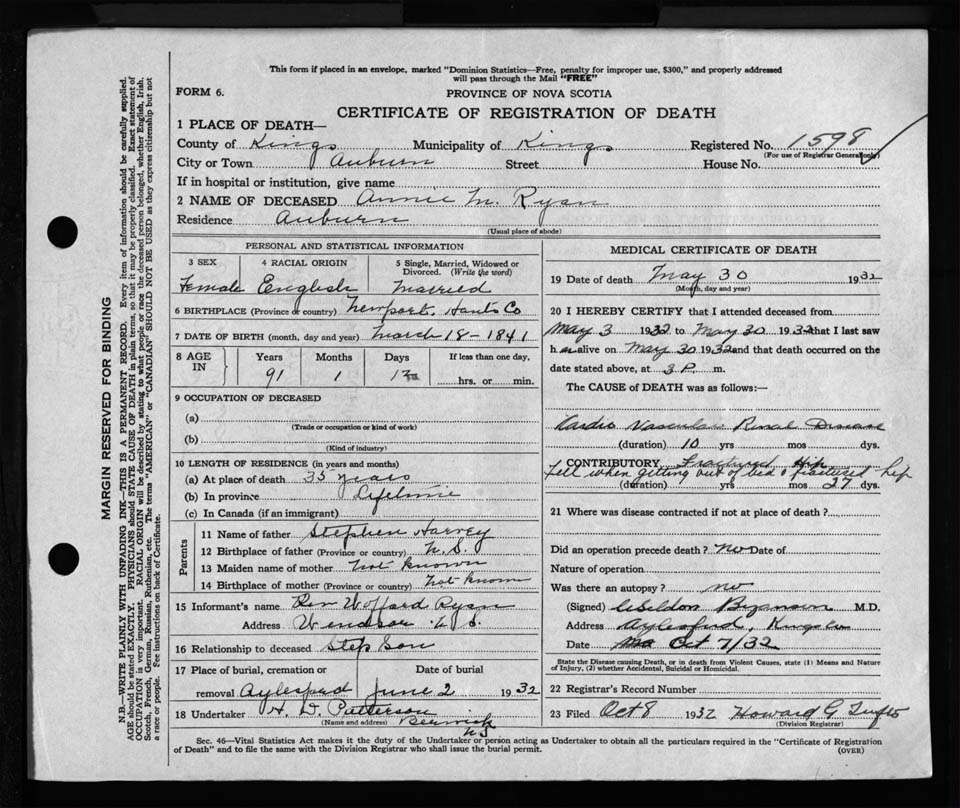 This form if placed in an envelope, marked "Dominion Statistics—Free, penalty for improper use, $300," and properly addressed
will pass through the Mail "FREE"
FORM 6.
PROVINCE OF NOVA SCOTIA
CERTIFICATE OF REGISTRATION OF DEATH
1 PLACE OF DEATH—
County of Kings Municipality of Kings Registered No. 1598
(For use of Registrar General only)
City or Town Auburn Street House No.
If in hospital or institution, give name
2 NAME OF DECEASED Annie M. Ryan
Residence Auburn
(Usual place of abode)
PERSONAL AND STATISTICAL INFORMATION
3 SEX 4 RACIAL ORIGIN 5 Single, Married, Widowed or
Divorced. (Write the word)
Female English Married
6 BIRTHPLACE (Province or country) Newport, Hants Co
7 DATE OF BIRTH (month, day and year) March 18 - 1841
8 AGE IN Years Months Days If less than one day,
91 1 hrs. or min.
9 OCCUPATION OF DECEASED
(a)
(Trade or occupation or kind of work)
(b)
(Kind of industry)
10 LENGTH OF RESIDENCE (in years and months)
(a) At place of death 35 years
(b) In province Lifetime
(c) In Canada (if an immigrant)
Parents
11 Name of father Stephen Harvey
12 Birthplace of father (Province or country) N.S.
13 Maiden name of mother Not known
14 Birthplace of mother (Province or country) Not known
15 Informant's name Rev Ryan
Address Windsor N S.
16 Relationship to deceased Step Son
17 Place of burial, cremation or Date of burial
removal Aylesford June 2 1932
18 Undertaker H. D. Patterson
(Name and address) Berwick
N S
MEDICAL CERTIFICATE OF DEATH
19 Date of death May 30 1932
(Month, day and year)
20 I HEREBY CERTIFY that I attended deceased from
May 3 1932 to May 30 1932 that I last saw
her alive on May 30 1932 and that death occurred on the
date stated above, at 3 P. m.
The CAUSE of DEATH was as follows:—
Cardio Vascular Renal Disease
(duration) 10 yrs mos dys.
CONTRIBUTORY Fractured Hip
Fell when getting out of bed & fractured hip
(duration) yrs mos 27 dys.
21 Where was disease contracted if not at place of death?
Did an operation precede death? No Date of
Nature of operation
Was there an autopsy? no
(Signed) M.D.
Address Aylesford, Kings Co
Date Oct 7/32
State the Disease causing Death, or in death from Violent Causes, state (1) Means and Nature
of Injury, (2) whether Accidental, Suicidal or Homicidal.
22 Registrar's Record Number
23 Filed Oct 8 1932 Howard G
(Division Registrar)
Sec. 46—Vital Statistics Act makes it the duty of the Undertaker or person acting as Undertaker to obtain all the particulars required in the "Certificate of Registration
of Death" and to file the same with the Division Registrar who shall issue the burial permit.
(OVER)
MARGIN RESERVED FOR BINDING
N.B.—WRITE PLAINLY WITH UNFADING INK—THIS IS A PERMANENT RECORD. Every item of information should be carefully supplied.
AGE should be stated EXACTLY. PHYSICIANS should STATE CAUSE OF DEATH in plain terms, so that it may be properly classified. Exact statement of
OCCUPATION is very important. RACIAL ORIGIN will be described by stating to what people or race the deceased person belonged, whether English, Irish,
Scotch, French, German, Russian, Ruthenian, etc. The terms "AMERICAN" or "CANADIAN" SHOULD NOT BE USED as they express citizenship but not
a race or people. Fee instructions on back of Certificate.